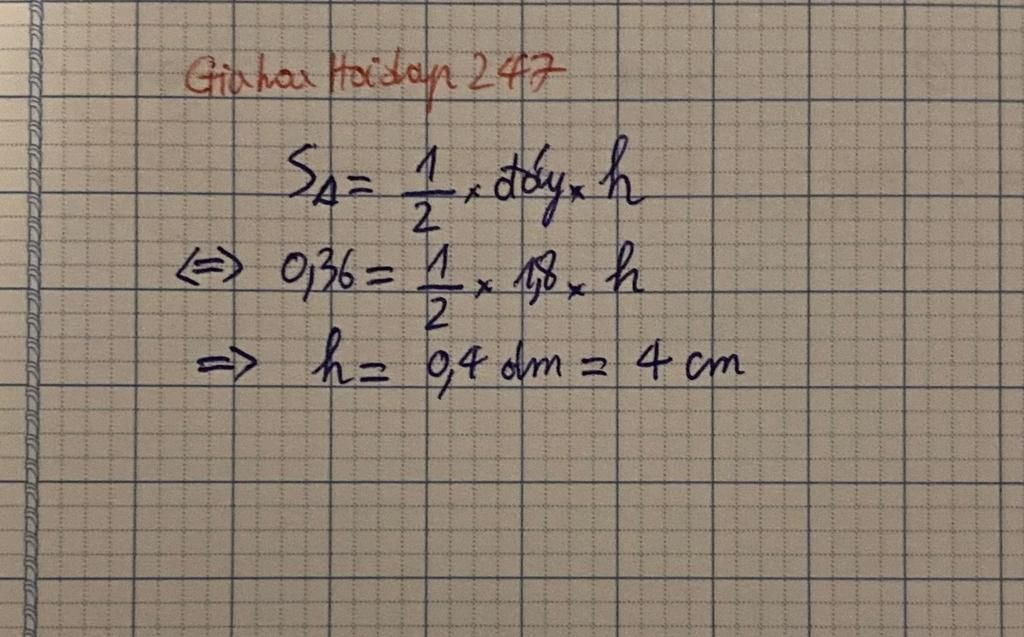 Giahoa Hoidap 247
S_Δ = 1/2 × đáy × h
<=> 0,36 = 1/2 × 1,8 × h
=> h = 0,4 dm = 4 cm